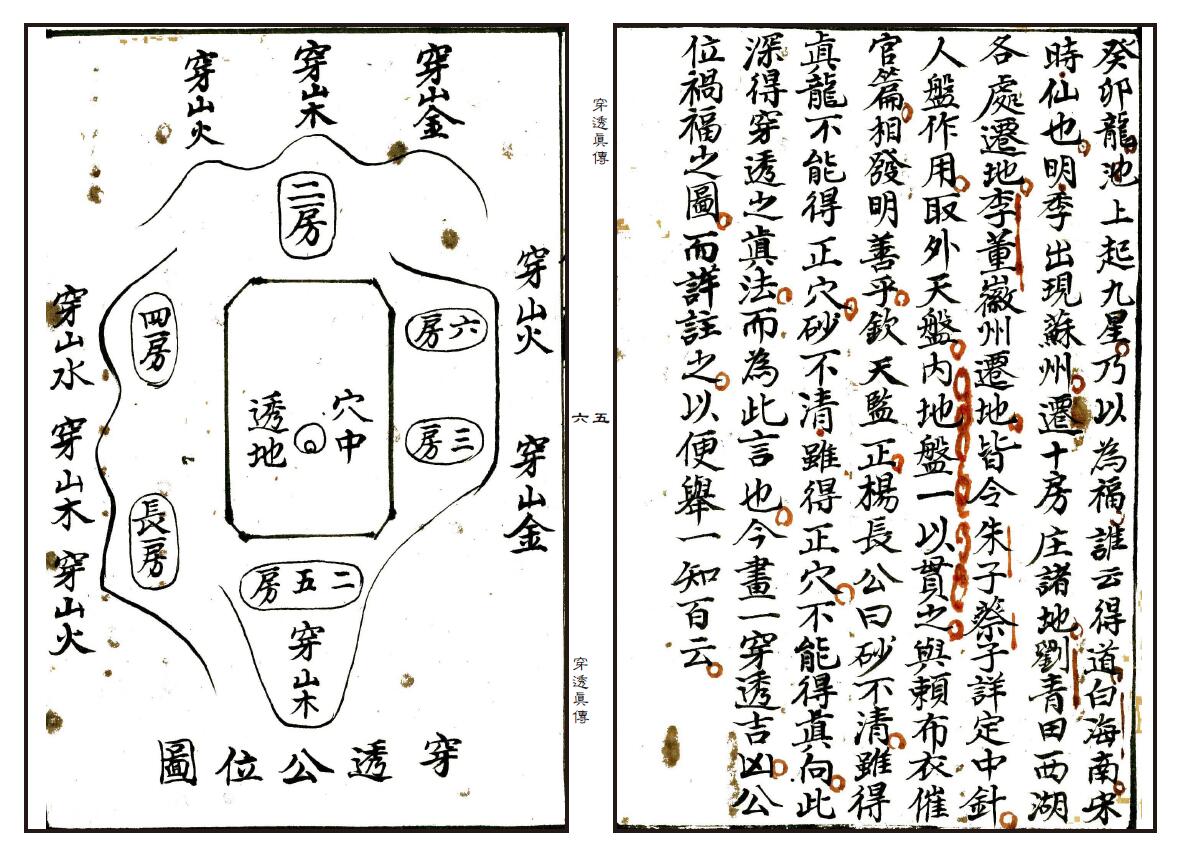 癸卯龍池上起九星乃以為福誰云得道白海南宋
時仙也明季出現蘇州遷十房庄諸地劉青田西湖
各處遷地李董徽州遷地皆令朱子蔡子詳定中針
人盤作用取外天盤內地盤一以貫之與賴布衣催
官篇相發明善乎欽天監正楊長公曰砂不清雖得
真龍不能得正穴砂不清雖得正穴不能得真向此
深得穿透之真法而為此言也今畫一穿透吉凶公
位禍福之圖而詳註之以便舉一知百云
穿透眞傳
五
六
穿透眞傳
穿山金
穿山木
穿山火
二房
穿山火
六房
穿山金
三房
穴中
透地
四房
長房
穿山水
穿山木
穿山火
二五房
穿山木
穿透公位圖